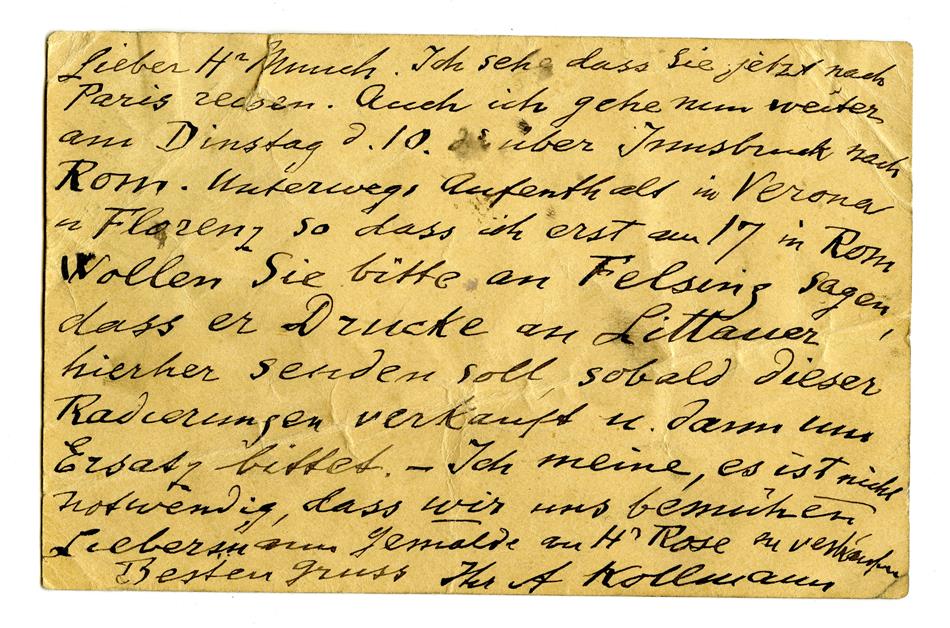 Lieber Hr Munch. Ich sehe dass Sie jetzt nach
Paris reisen. Auch ich gehe nun weiter
am Dinstag d. 10. über Innsbruck nach
Rom. Unterwegs Aufenthalt in Verona
u Florenz so dass ich erst am 17 in Rom
Wollen Sie bitte an Felsing sagen,
dass er Drucke an Littauer
hierher senden soll, sobald dieser
Radierungen verkauft u. dann um
Ersatz bittet. – Ich meine, es ist nicht
notwendig, dass wir uns bemühen
Liebermann Gemälde an Hr Rose zu verkaufen
Besten Gruss Ihr A Kollmann